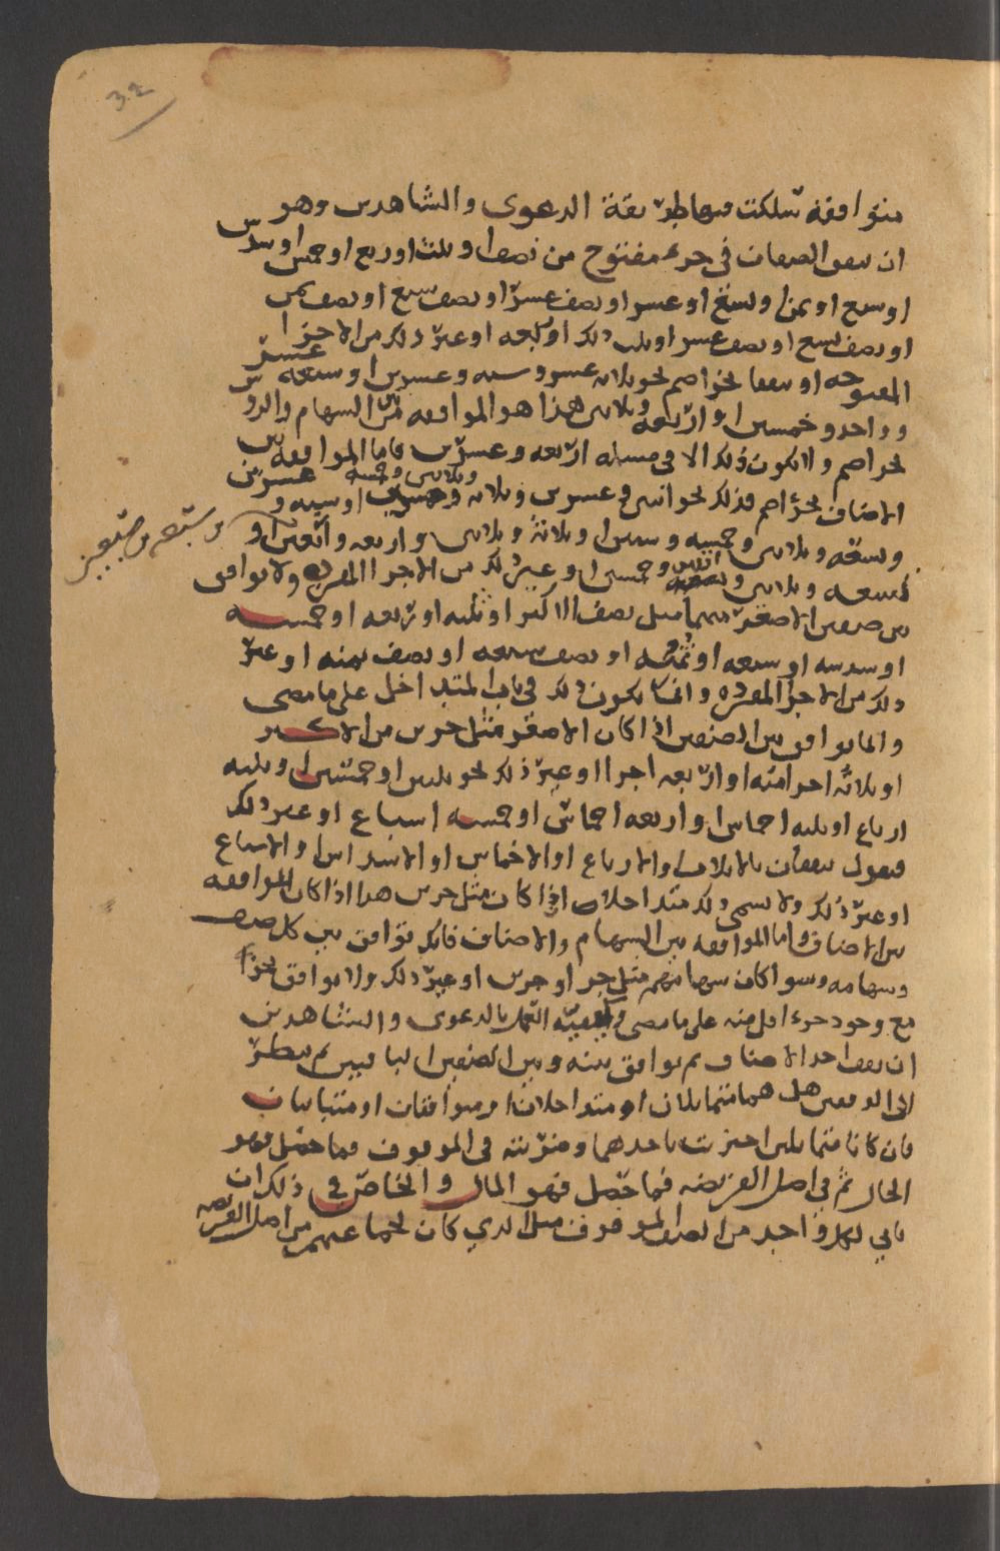 32
متوافقة سلكت فيها طريقة الدعوى والشاهدين وهو
ان يتفق الصنفان في جزء مفتوح من نصف او ثلث او ربع او خمس او سدس
او سبع او ثمن او تسع او عشر او نصف عشر او نصف سبع او نصف ثمن
او نصف تسع او نصف عشر او ثلث ذلك او ربعه او غير ذلك من الاجزا
المفتوحه او يتفقا بجزء اصم نحو ثلاثه عشر وسته وعشرين او سبعه عشر
وواحد وخمسين او اربعه وثلاثين هذا هو الموافقه بين السهام والرووس
بجزء اصم ولا يكون ذلك الا في مسئله اربعه وعشرين فاما الموافقه بين
الاصناف بجزء اصم فذلك نحو اثنين وعشرين وثلاثه وثلاثين وخمسه او سته وعشرين
وتسعه وثلاثين وخمسه وستين او ثلاثة وثلاثين واربعه واربعين او
تسعه وثلاثين واثنين وخمسين او غير ذلك من الاجزا المفرده ولا يوافق
بين صنفين الاصغر منهما مثل نصف الاكبر او ثلثه او ربعه او خمسه
او سدسه او سبعه او ثمنه او نصف سبعه او نصف ثمنه او غير
ذلك من الاجزا المفرده وانما يكون ذلك في باب المتداخل على ما مضى
وانما يوافق بين الصنفين اذا كان الاصغر مثل جزين من الاكبر
او ثلاثه اجزا منه او اربعه اجزا او غير ذلك نحو ثلثين او خمسين او ثلثه
ارباع او ثلثه اخماس او اربعه اخماس او خمسه اسباع او غير ذلك
فيقول يتفقان بالاثلاث او الارباع او الاخماس او الاسداس او الاسباع
او غير ذلك ولا يسمى ذلك متداخلا اذا كان مثل جزين هذا اذا كان الموافقه
بين الاصناف واما الموافقه بين السهام والاصناف فانك توافق بين كل صنف
وسهامه وسوا كان سهامهم مثل جزء او جزين او غير ذلك ولا يوافق بجزء
مع وجود جزء اقل منه على ما مضى وكيفيه العمل بالدعوى والشاهدين
ان يقف احد الاصناف ثم يوافق بينه وبين الصنفين الباقيين ثم ينظر
الى الوفقين هل هما متماثلان او متداخلان او متوافقان او متباينان
فان كانا متماثلين اجتزيت باحدهما وضربته في الموقوف فما حصل فهو
الحال ثم في اصل الفريضه فما حصل فهو المال والخاص في ذلك ان
ياتي لكل واحد من الصنف الموقوف مثل الذي كان لجماعتهم من اصل الفريضه